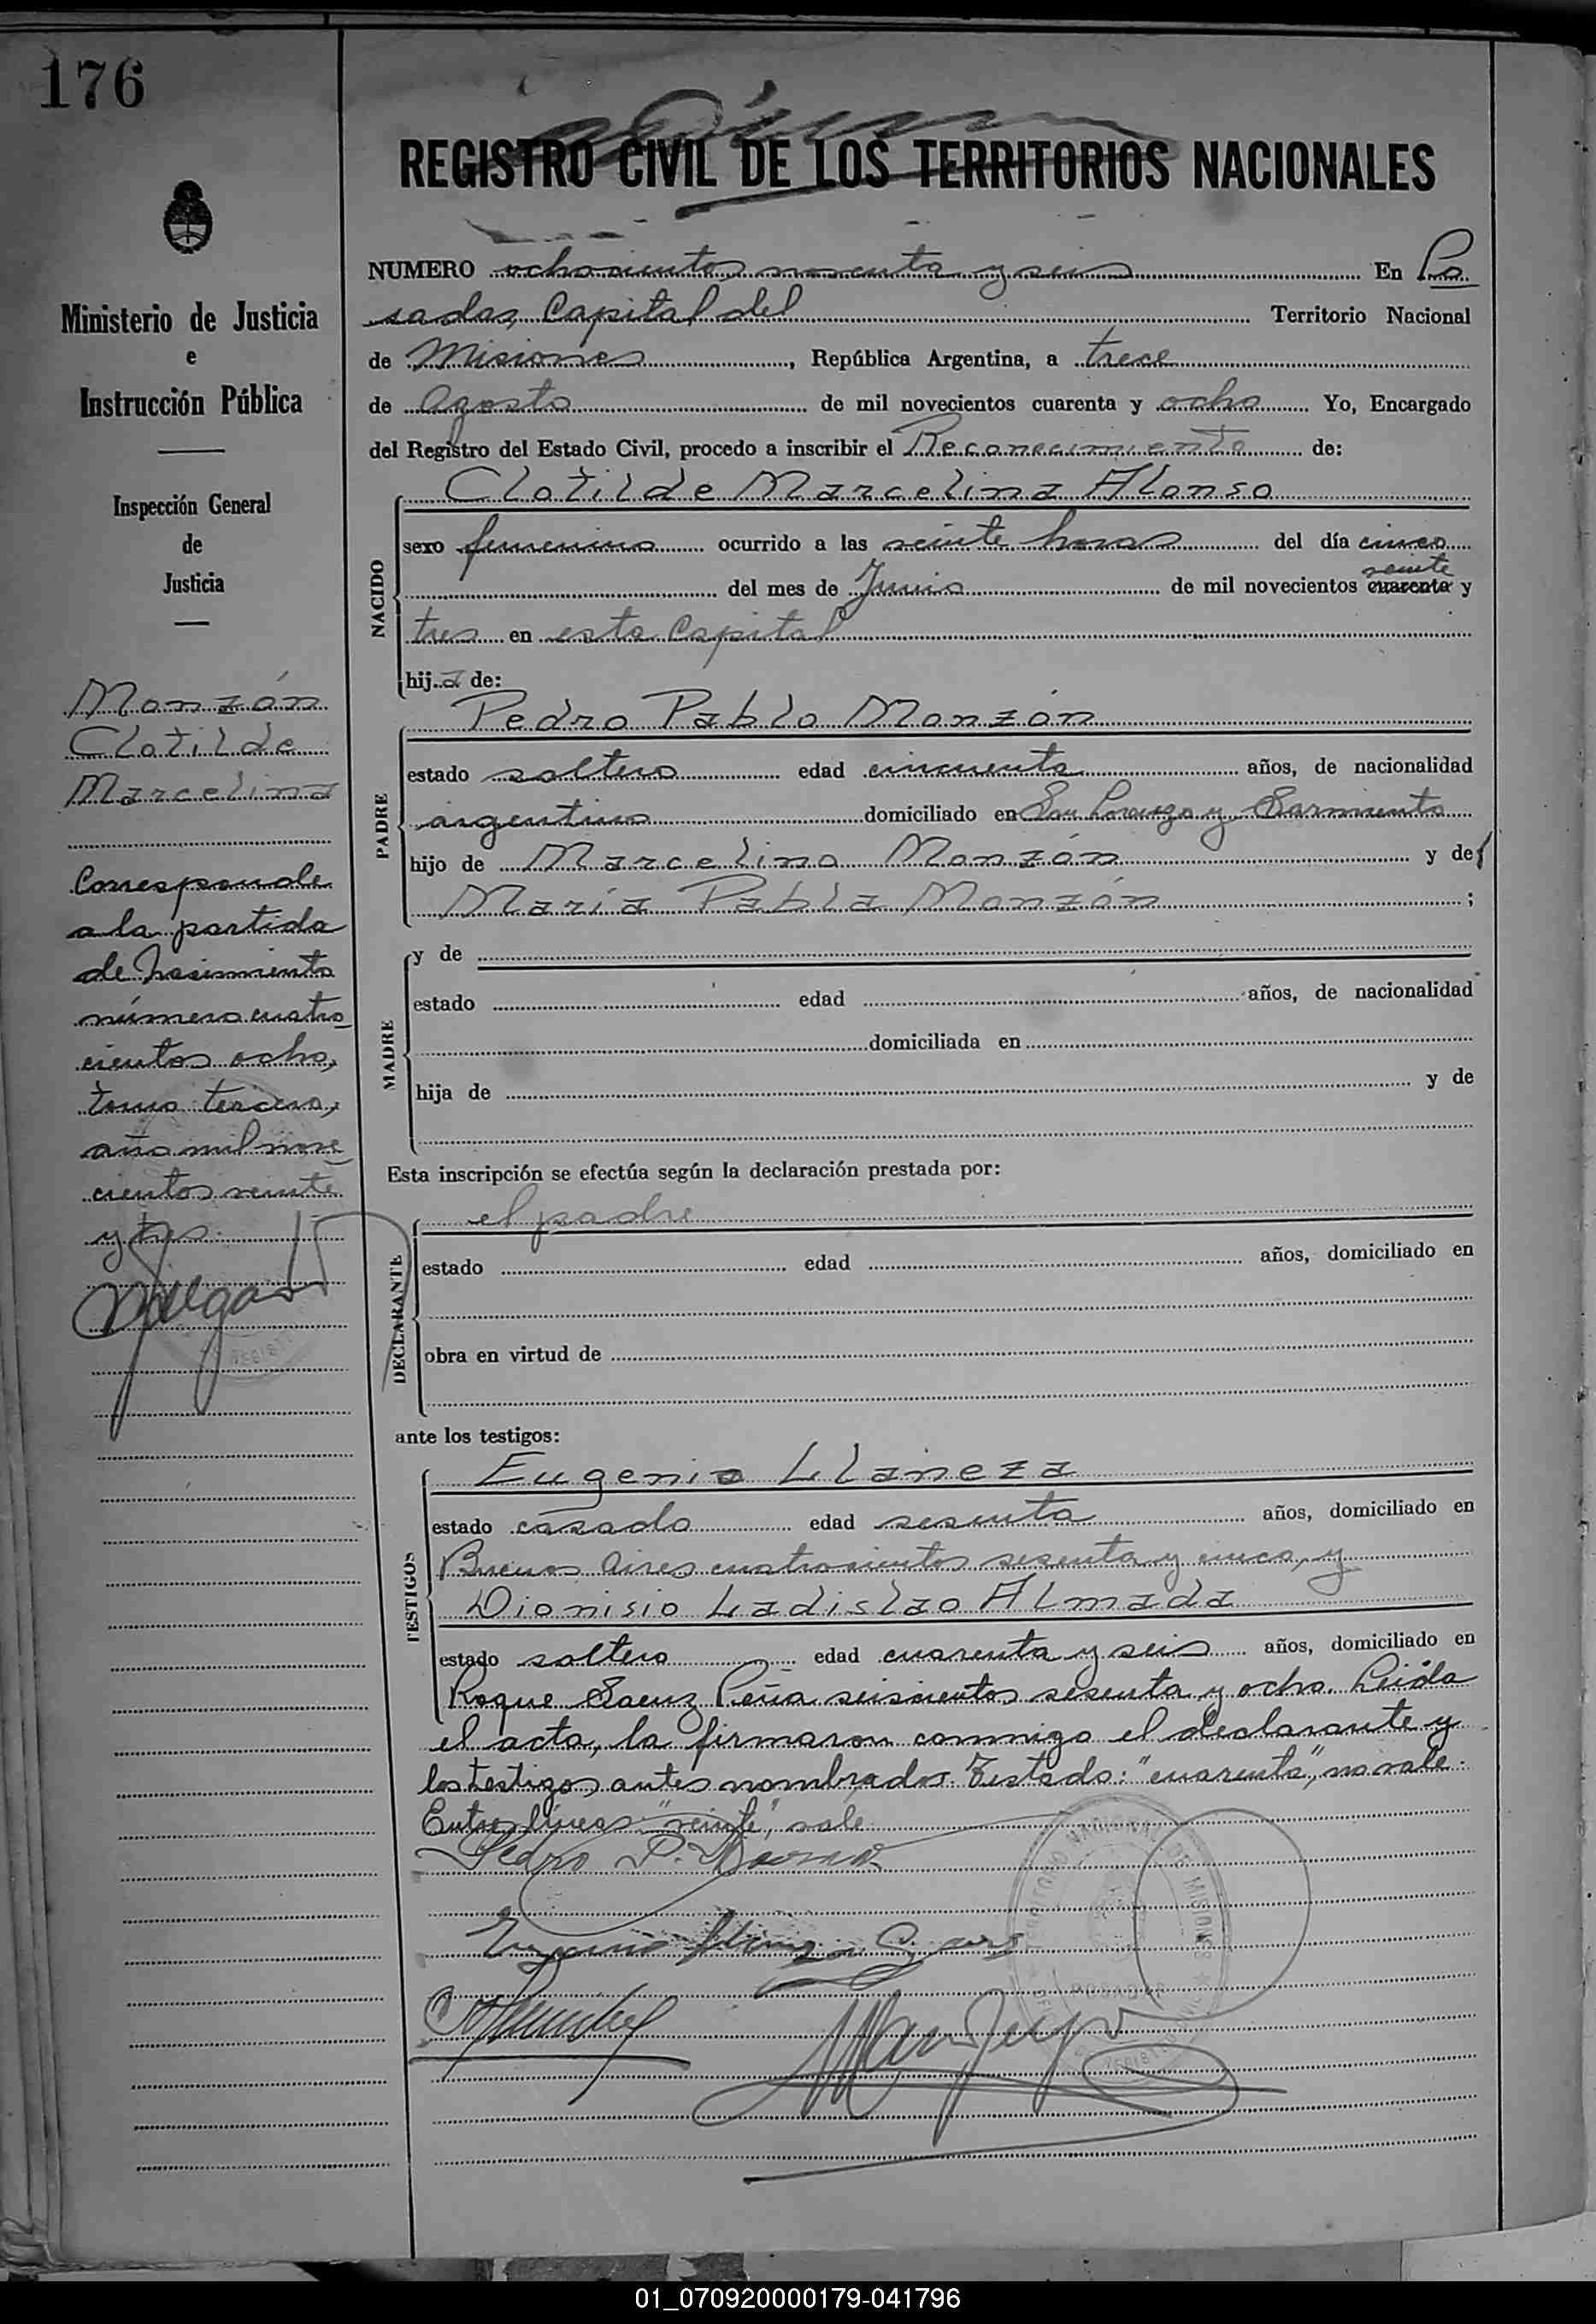 176
REGISTRO CIVIL DE LOS TERRITORIOS NACIONALES
Ministerio de Justicia
e
Instrucción Pública
Inspección General
de
Justicia
Monzón
Clotilde
Marcelina
Corresponde
a la partida
de Nacimiento
número cuatro
cientos ocho,
tomo tercero,
año mil nove
cientos veinte
y tres.
NUMERO ochocientos noventa y seis En Po
sadas, Capital del Territorio Nacional
de Misiones, República Argentina, a trece
de Agosto de mil novecientos cuarenta y ocho Yo, Encargado
del Registro del Estado Civil, procedo a inscribir el Reconocimiento de:
NACIDO
Clotilde Marcelina Alonso
sexo femenino ocurrido a las veinte horas del día cinco
veinte
del mes de Junio de mil novecientos cuarenta y
tres en esta Capital
hija de:
PADRE
Pedro Pablo Monzón
estado soltero edad cincuenta años, de nacionalidad
argentino domiciliado en San Lorenzo y Sarmiento
hijo de Marcelino Monzón y de
María Pabla Monzón ;
MADRE
y de
estado edad años, de nacionalidad
domiciliada en
hija de y de
Esta inscripción se efectúa según la declaración prestada por:
DECLARANTE
el padre
estado edad años, domiciliado en
obra en virtud de
ante los testigos:
TESTIGOS
Eugenio Llaneza
estado casado edad sesenta años, domiciliado en
Buenos Aires cuatrocientos sesenta y cinco, y
Dionisio Ladislao Almada
estado soltero edad cuarenta y seis años, domiciliado en
Roque Saenz Peña seiscientos sesenta y ocho. Leída
el acta, la firmaron conmigo el declarante y
los testigos antes nombrados. Testado: "cuarenta", no vale.
Entre líneas: "veinte", vale
Pedro P. Monzón
01_070920000179-041796